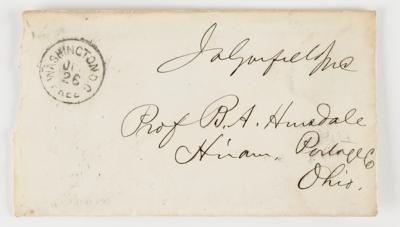 WASHINGTON D.C.
26
FREE
JAGarfield MC
Prof B. A. Hinsdale
Hiram, Portage Co
Ohio.